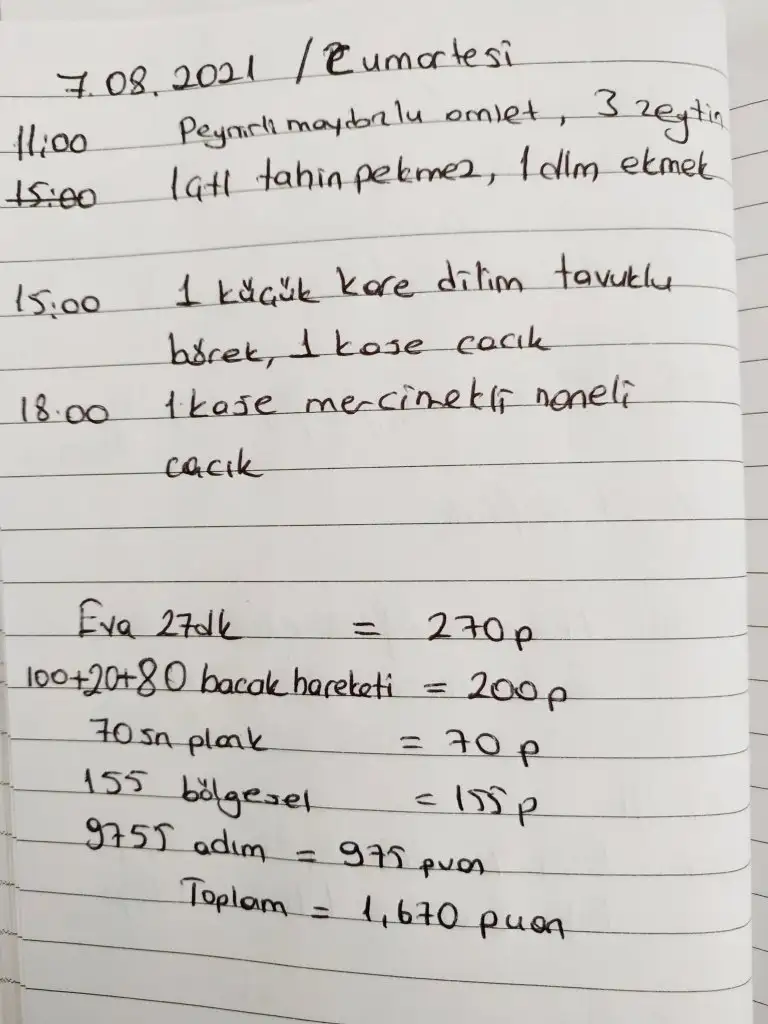 7.08.2021 / Cumartesi
11:00 Peynirli maydonzlu omlet, 3 zeytin
15:00 1 çtl tahin pekmez, 1 dlm ekmek
15:00 1 küçük kare dilim tavuklu
börek, 1 kase cacık
18:00 1 kase mercimekli naneli
cacık
Eva 27dk = 270p
100+20+80 bacak hareketi = 200p
70 sn plank = 70 p
155 bölgesel = 155p
9755 adım = 975 puan
Toplam = 1,670 puan